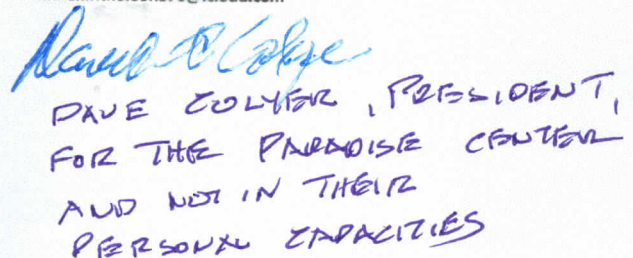 David C Colyer
DAVE COLYER, PRESIDENT,
FOR THE PARADISE CENTER
AND NOT IN THEIR
PERSONAL CAPACITIES